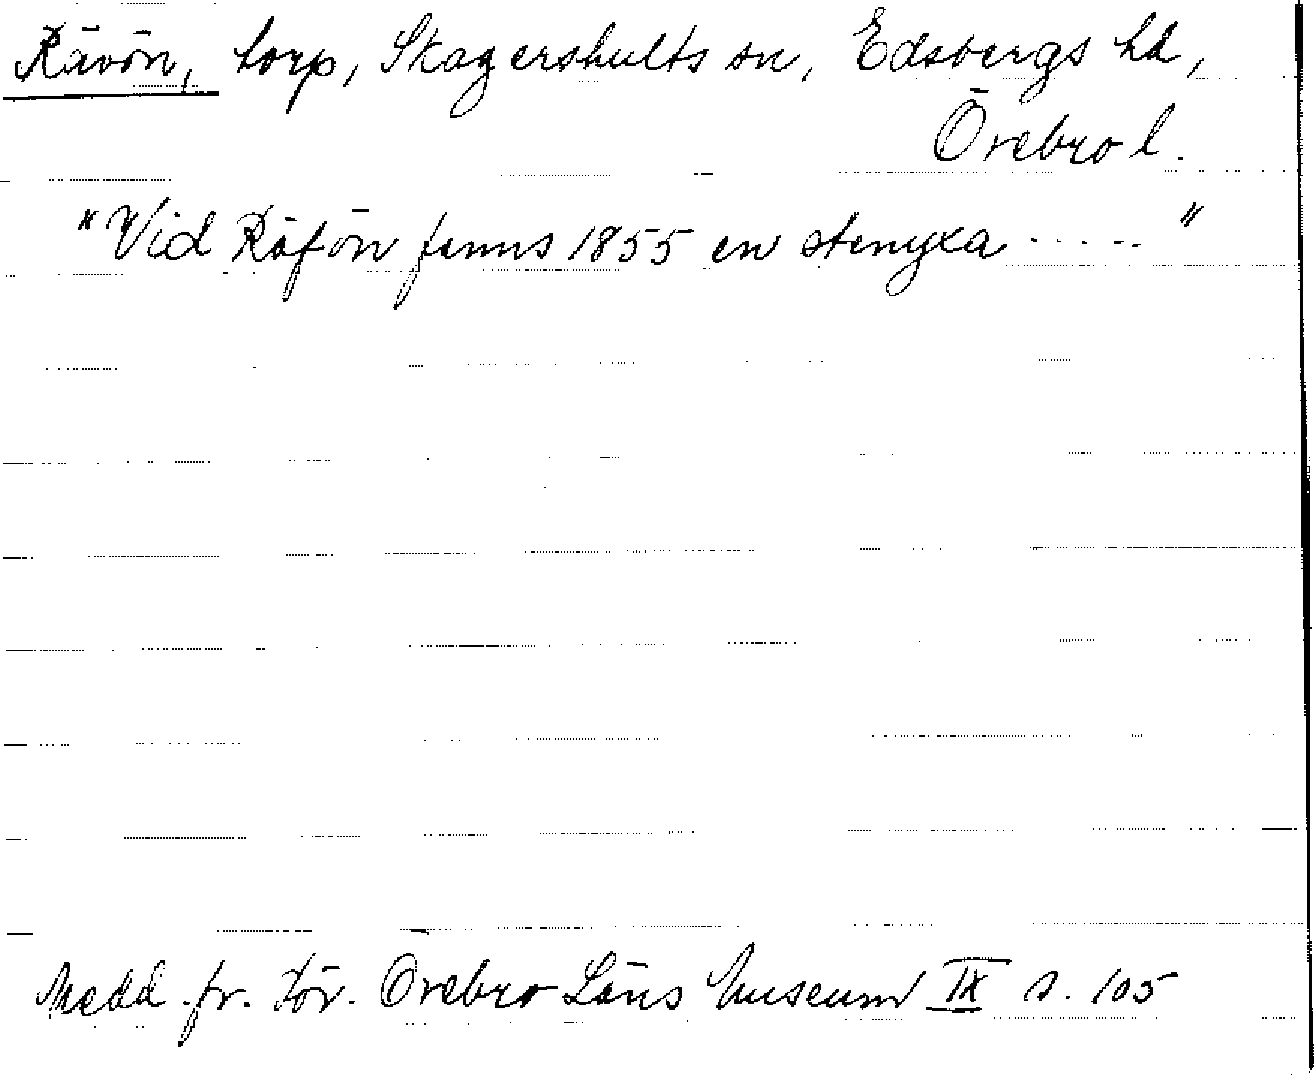 Rävön, torp, Skagershults sn, Edsbergs hd,
Örebro l.
"Vid Räfön fanns 1855 en stenyxa ..... "
Medd. fr. För. Örebro Läns Museum IX s. 105